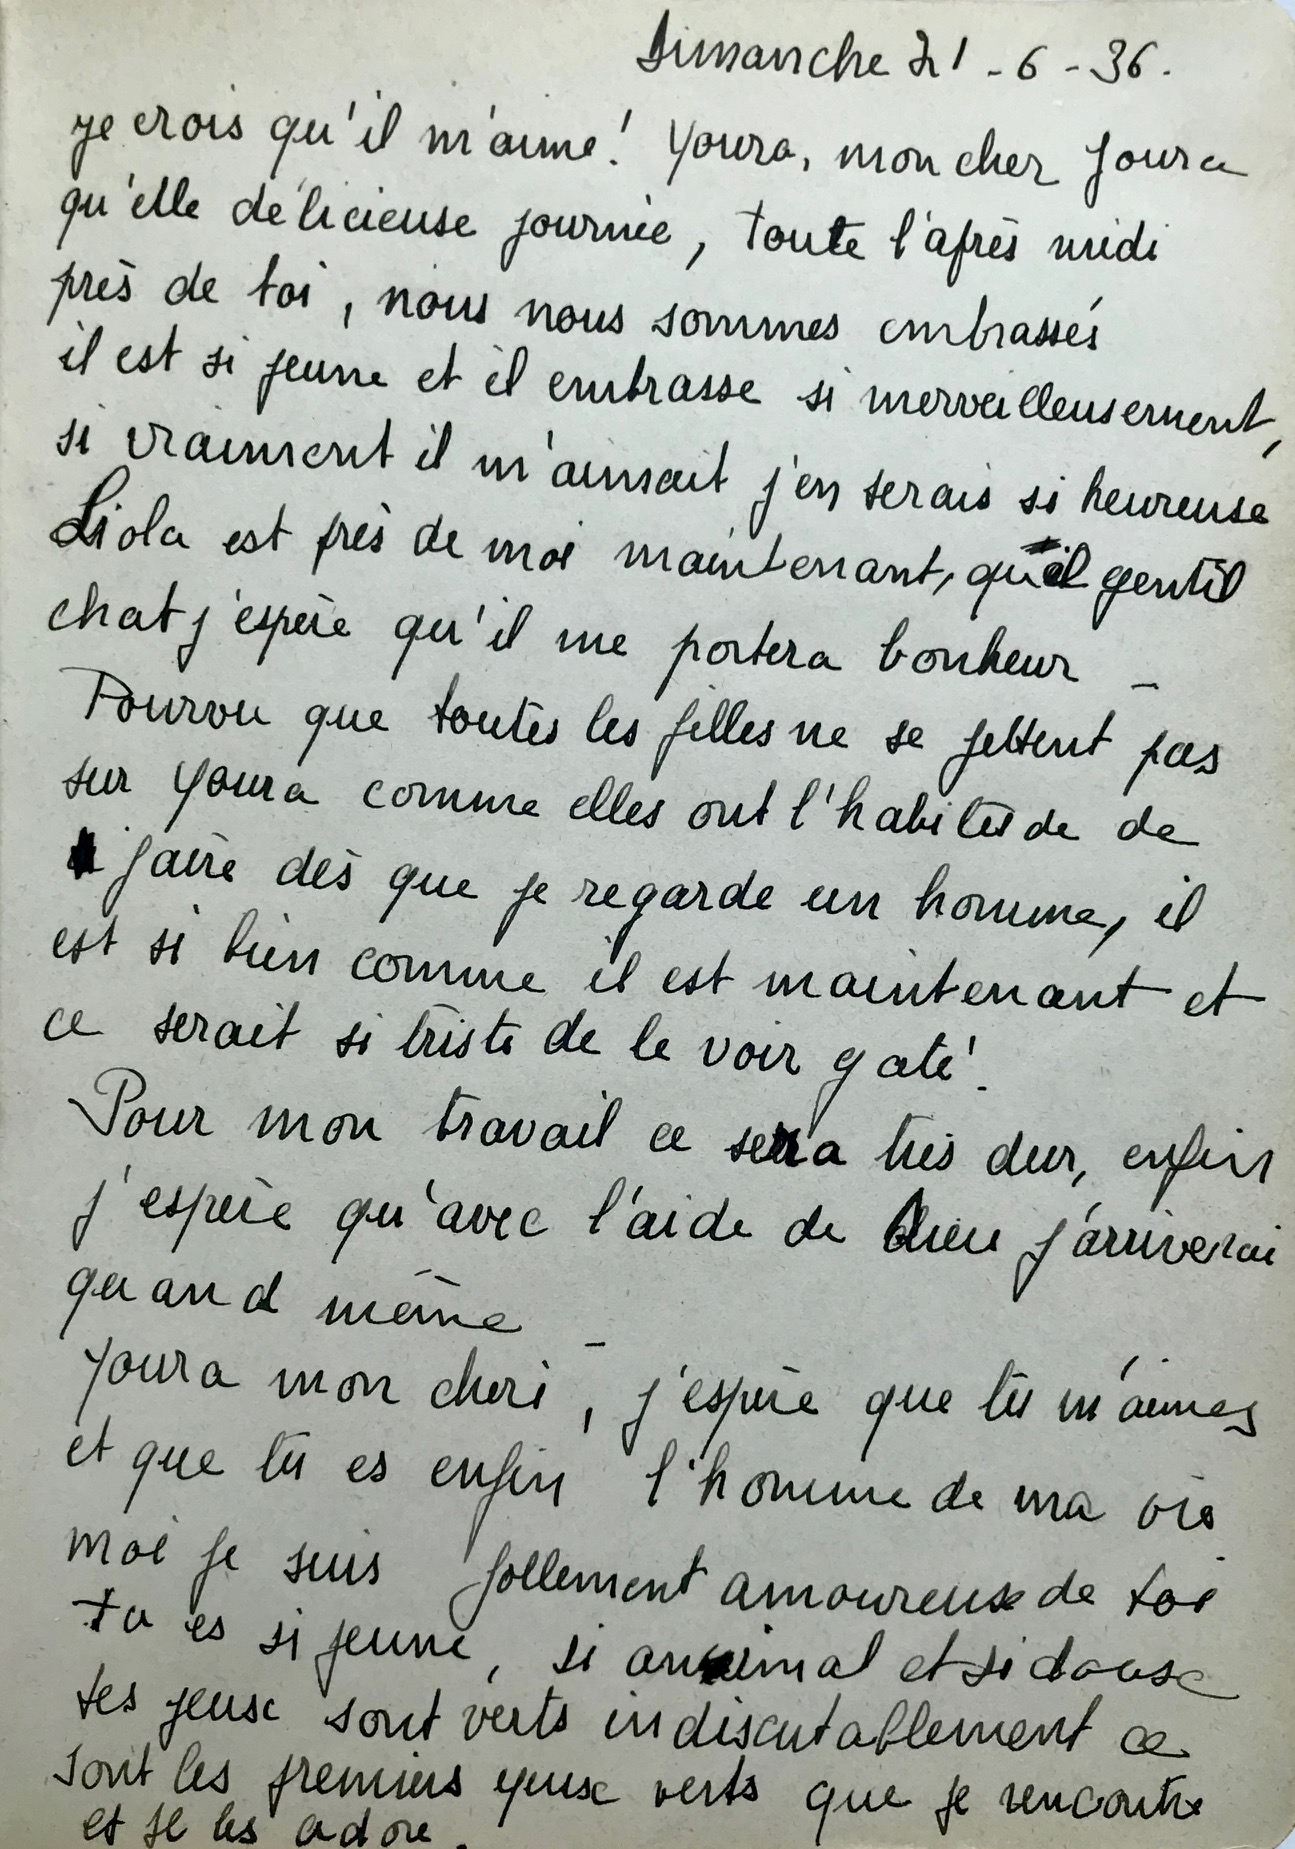 Dimanche 21-6-36.
je crois qu'il m'aime! Youra, mon cher Joura
qu'elle délicieuse journée, toute l'après midi
près de toi, nous nous sommes embrassés
il est si jeune et il embrasse si merveilleusement,
si vraiment il m'aimait j'en serais si heureuse
Liola est près de moi maintenant, quel gentil
chat j'espère qu'il me portera bonheur _
Pourvu que toutes les filles ne se jettent pas
sur Youra comme elles ont l'habitude de
faire dès que je regarde un homme, il
est si bien comme il est maintenant et
ce serait si triste de le voir gaté.
Pour mon travail ce sera très dur, enfin
j'espère qu'avec l'aide de Dieu j'arriverai
quand même _
Youra mon cheri, j'espère que tu m'aimes
et que tu es enfin l'homme de ma vie
moi je suis follement amoureuse de toi
tu es si jeune, si animal et si doux
tes yeux sont verts indiscutablement ce
sont les premiers yeux verts que je rencontre
et je les adore.